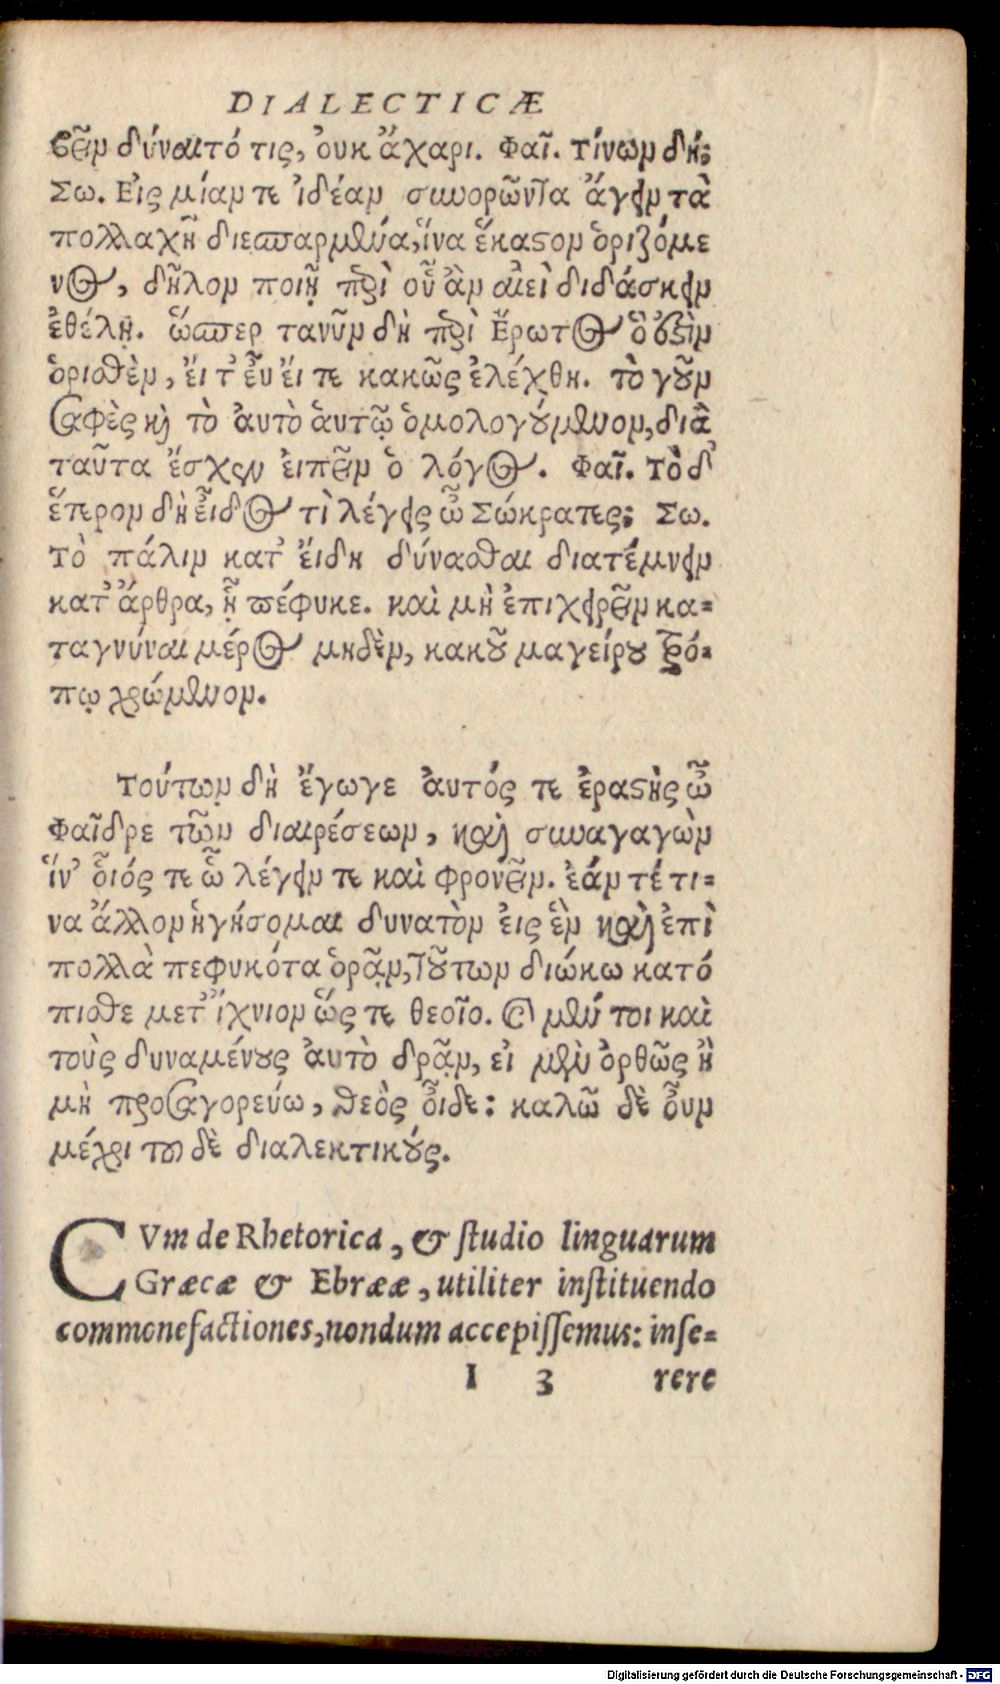 DIALECTICÆ
βεῖν δύναιτό τις, ὀυκ ἄχαρι. Φαῖ. Τίνων δή;
Σω. Εἰς μίαν τε ἰδέαν συνορῶντα ἄγειν τὰ
πολλαχῆ διεσπαρμένα, ἵνα ἕκαστον ὁριζόμε
νος, δῆλον ποιῇ περὶ οὗ ἂν αἰεὶ διδάσκειν
ἐθέλῃ. ὥσπερ τανῦν δὴ περὶ Ἔρωτος ὃ ἐστὶν
ὁρισθὲν, ἔιτ' ἐῦ ἔι τε κακῶς ἐλέχθη. τὸ γοῦν
σαφὲς καὶ τὸ ἀυτὸ ἁυτῷ ὁμολογούμενον, διὰ
ταῦτα ἔσχεν ἐιπεῖν ὁ λόγος. Φαῖ. Τὸ δ'
ἕτερον δὴ εἶδος τὶ λέγεις ὦ Σώκρατες; Σω.
Τὸ πάλιν κατ' ἔιδη δύνασθαι διατέμνειν
κατ' ἄρθρα, ᾗ πέφυκε. καὶ μὴ ἐπιχειρεῖν κα-
ταγνύναι μέρος μηδὲν, κακοῦ μαγείρου τρό-
πῳ χρώμενον.
Τούτων δὴ ἔγωγε ἀυτός τε ἐραστὴς ὦ
Φαῖδρε τῶν διαιρέσεων, καὶ συναγαγὼν
ἵν' οἷός τε ὦ λέγειν τε καὶ φρονεῖν. ἐάν τέ τι-
να ἄλλον ἡγήσομαι δυνατὸν ἐις ἓν καὶ ἐπὶ
πολλὰ πεφυκότα ὁρᾷν, τοῦτον διώκω κατό
πισθε μετ' ἴχνιον ὥς τε θεοῖο. καὶ μέν τοι καὶ
τοὺς δυναμένους ἀυτὸ δρᾷν, εἰ μὲν ὀρθῶς ἢ
μὴ προσαγορεύω, θεὸς οἶδε: καλῶ δὲ οὖν
μέχρι τοῦ δὲ διαλεκτικούς.
CVm de Rhetorica, & studio linguarum
Græcæ & Ebrææ, utiliter instituendo
commonefactiones, nondum accepissemus: inse-
I 3 rere
Digitalisierung gefördert durch die Deutsche Forschungsgemeinschaft - DFG